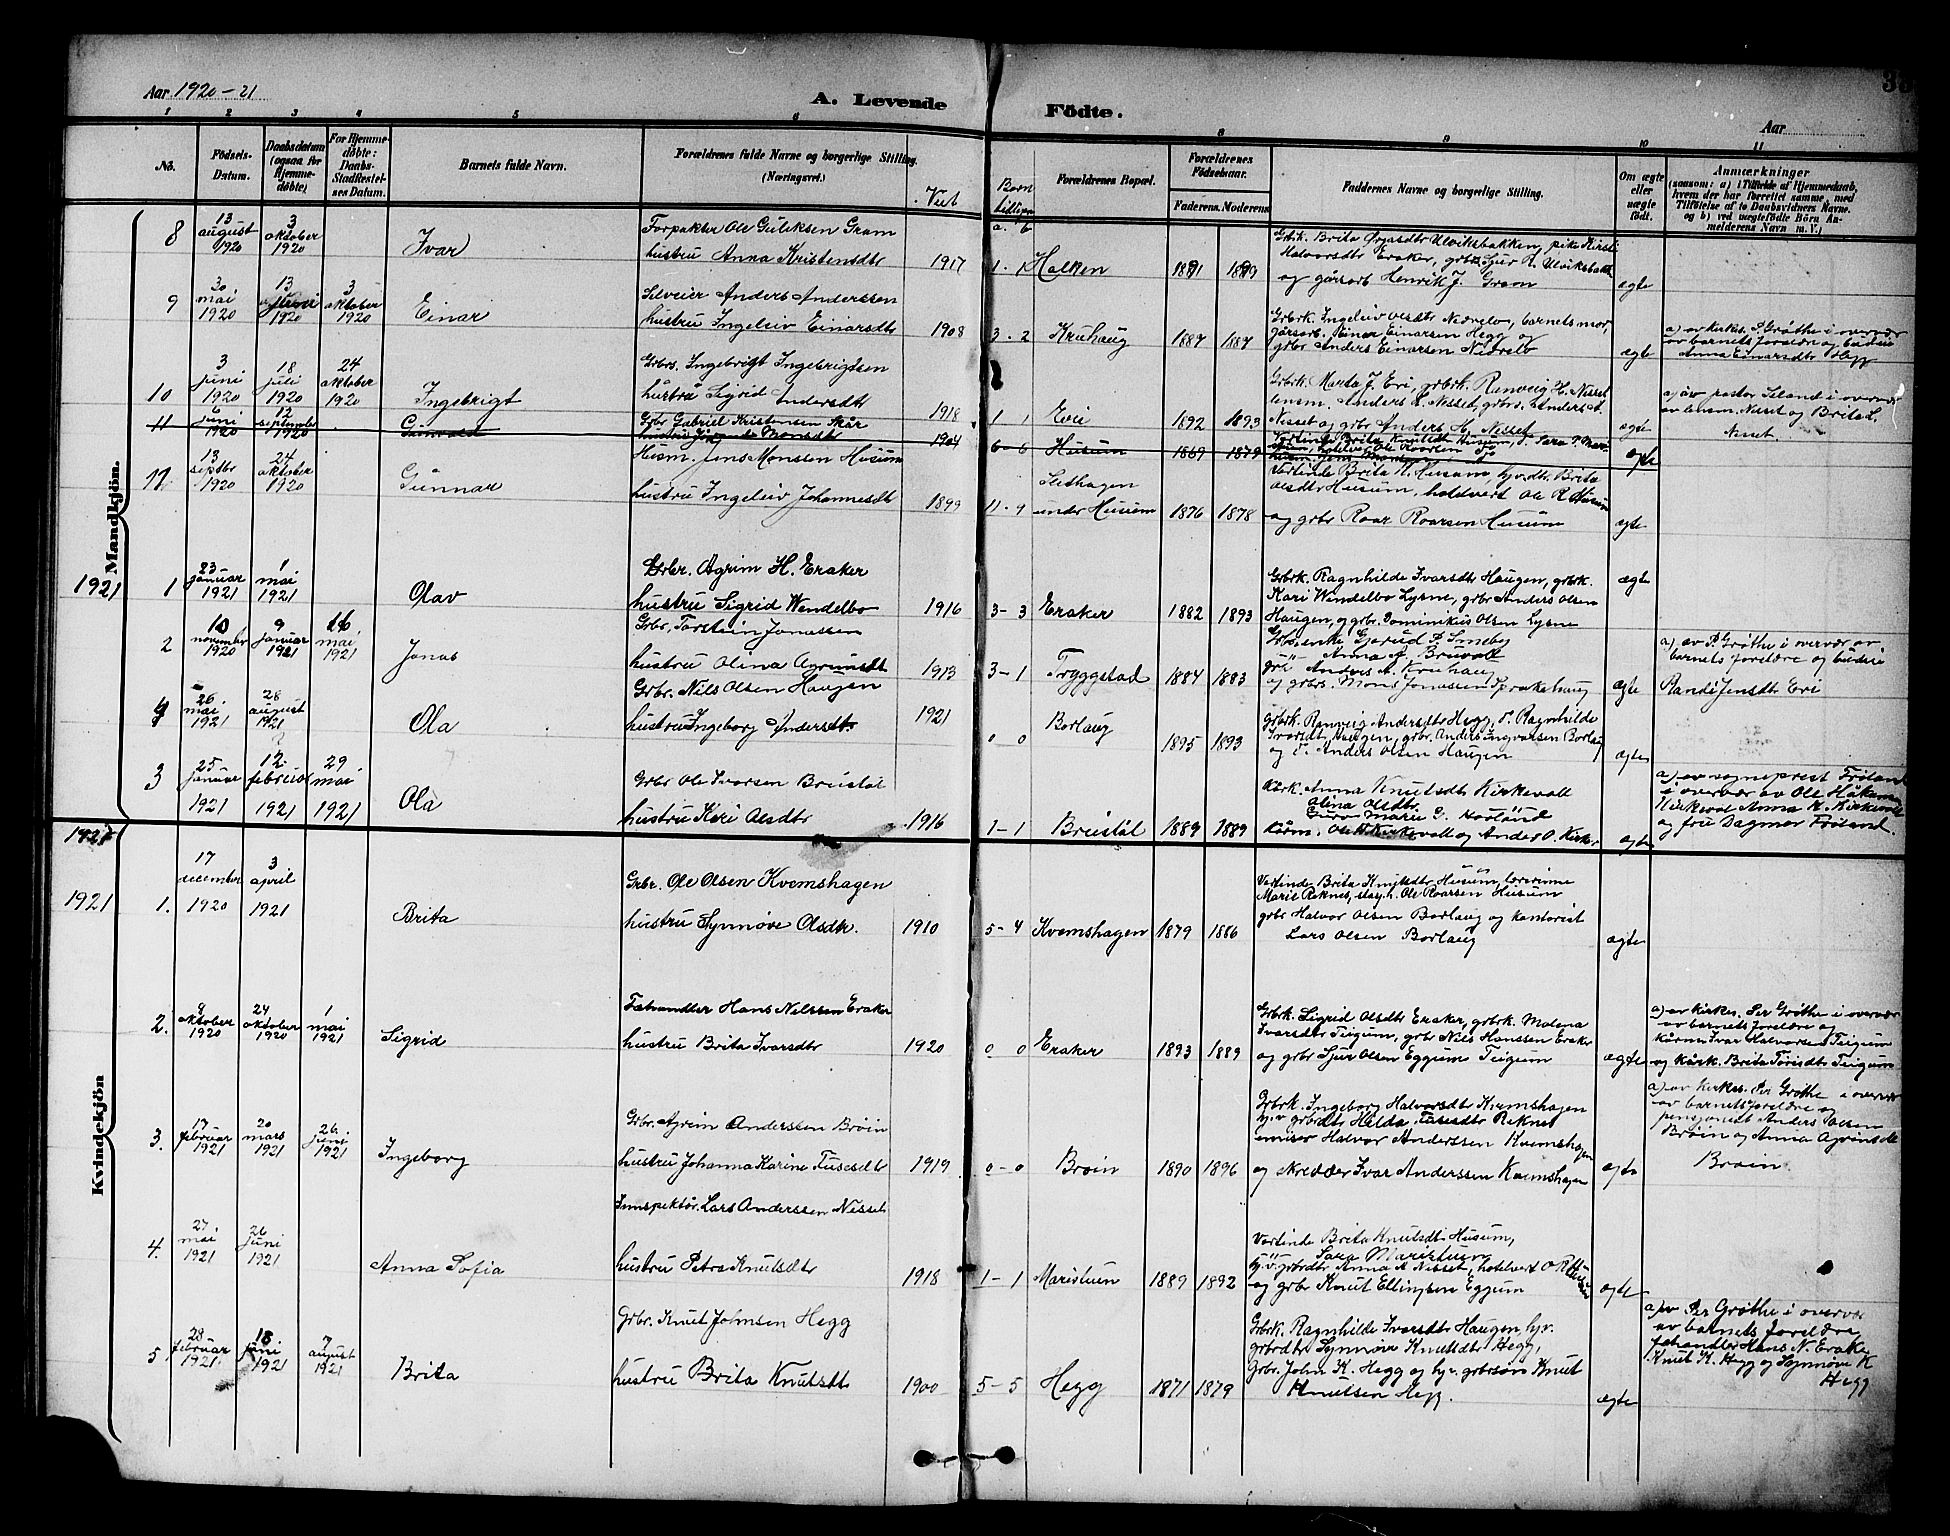 Aar 1920-21
A. Levende
Födte.
Aar
1 2 3 4 5 6
8 9 10 11
No.
Födsels-Datum.
Daabsdatum (ogsaa for Hjemmedöbte)
For Hjemmedöbte: Daabs-Stadfæstelses Datum.
Barnets fulde Navn.
Forældrenes fulde Navne og borgerlige Stilling.
(Næringsvei.)
Viet
Born tidligere
a. b
Forældrenes Bopæl.
Forældrenes Födselsaar.
Faderens. Moderens
Faddernes Navne og borgerlige Stilling.
Om ægte eller uægte födt.
Anmærkninger
(saasom: a) i Tilfælde af Hjemmedaab,
hvem der har forrettet samme, med
Tilföielse af to Daabsvidners Navne.
og b) ved uægtefödte Börn Anmelderens Navn m. V.)
Mandkjön.
8 13 august 1920 3 oktober 1920 Ivar
Forpakter Ole Guliksen Gram
hustru Anna Kristensdtr 1917
1. 1 Halken 1891 1899
Halvorsdtr Eraker,
og gårsarb Henrik J. Gram ægte
9 30 mai 1920 13 1920 3 oktober 1920 Einar
Anders Anderssen
hustru Ingeleiv Einarsdtr 1908
3. 2 Kruhaug 1887 1887
Grbrk. Ingeleiv Olsdtr Nedrelo, barnets mor,
gårsarb. Einar Einarsen Hegg og
grbr Anders Einarsen Nedrelo ægte
a) av kirkes. P. Grøthe i overvær
av barnets forældre og
Anna Einarsdtr Hegg
10 3 juni 1920 18 juli 1920 24 oktober 1920 Ingebrigt
Grbrs. Ingebrigt Ingebrigtsen
hustru Sigrid Andersdtr 1918
1 1 Eri 1892 1893
Grbrk. Marta J. Eri, grbrk. Ranveig H. Nisset
lensm. Anders L. Nisset, grbrs. Anders A.
Nisset og grbr Anders H. Nisset ægte
a) av pastor Seland i overvær
av lensm. Nisset og Brita L.
Nisset
11 6 juni 1920 12 september 1920
Grbr Gabriel Kristensen Skår
hustru Monsdtr 1904
6-6 Husum 1869 1879
Brita Knutsdtr Husum,
ægte
11 13 septbr 1920 24 oktober 1920 Gunnar
Husm. Jens Monssen Husum
hustru Ingeleiv Johannesdtr 1899
11-9 Slethagen
under Husum 1876 1878
Vertinde Brita K. Husum, hv.dtr. Brita
Olsdtr Husum, hotelvert Ole R. Husum
og grbr Roar Roarsen Husum ægte
1921
1 23 januar 1921 1 mai 1921 Olav
Grbr. Agrim H. Eraker
hustru Sigrid Wendelbo 1916
3-3 Eraker 1882 1893
Grbrk. Ragnhilde Ivarsdtr Haugen, grbrk.
Kari Wendelbo Lysne, grbr Anders Olsen
Haugen, og grbr. Dominikus Olsen Lysne ægte
2 10 november 1920 9 januar 1921 16 mai 1921 Jonas
Grbr. Torstein Jonassen
hustru Olina Agrimsdt 1913
3-1 Tryggstad 1884 1883
Grbr.enke Gjørud P. Smeby
Anna Bruvoll
Anders A. Kruhaug
og grbr. Mons Jonassen Sprakehaug ægte
a) av P. Grøthe i overvær av
barnets forældre og
Randi Jensdtr Eri
4 26 mai 1921 28 august 1921 Ola
Grbr. Nils Olsen Haugen
hustru Ingeborg Andersdt. 1921
0 0 Borlaug 1895 1893
Grbrk. Ranveig Andersdtr Hegg, P. Ragnhilde
Ivarsdtr Haugen, grbr. Anders Ingvarsen Borlaug
og P. Anders Olsen Haugen ægte
3 25 januar 1921 12 februar 1921 29 mai 1921 Ola
Grbr Ole Ivarsen Breistøl
hustru Kari Olsdtr 1916
1-1 Breistøl 1889 1889
Anna Knutsdtr Kirkevoll
Olina Olsdtr
Guro Marie G. Havland
Kårm. Ole H. Kirkevoll og Anders O. Kirkev. ægte
a) av sogneprest Frøland
i overvær av Ole Håkans
Kirkevol Anna K. Kirkevol
og fru Dagmar Frøland.
1921
Kvindekjön
1921
1. 17 december 1920 3 april 1921 Brita
Grbr. Ole Olsen Kvemshagen
hustru Synnøve Olsdtr. 1910
5-4 Kvemshagen 1879 1886
Vertinde Brita Knutsdtr Husum, lærerinne
Marie Reknes, Ole Roarsen Husum
grbr Halvor Olsen Borlaug og kontorist
Lars Olsen Borlaug ægte
2. 9 oktober 1920 24 oktober 1920 1 mai 1921 Sigrid
Fehandler Hans Nilssen Eraker
hustru Brita Ivarsdtr 1920
0 0 Eraker 1893 1889
Grbrk. Sigrid Olsdtr Eraker, grbrk. Malena
Ivarsdtr Teigum, grbr Nils Hanssen Eraker
og grbr Sjur Olsen Eggum Teigum ægte
a) av kirkes. Per Grøthe i overvær
av barnets forældre og
kårm. Ivar Halvorsen Teigum
og kårk. Brita Torisdtr Teigum
3. 17 februar 1921 20 mars 1921 26 juni 1921 Ingeborg
Grbr. Agrim Anderssen Brøin
hustru Johanna Karine Tusesdtr 1919
0-0 Brøin 1890 1896
Grbrk. Ingeborg Halvorsdtr Kvemshagen
hjv grbrdtr Hilda Tusesdtr Reknes
emisær Halvor Anderssen Kvemshagen
og skredder Ivar Anderssen Kvemshagen ægte
a) av kirkes. Per Grøthe i overvær
av barnets forældre og
pensjonist Anders Olsen
Brøin og Anna Agrimsdtr
Brøin
4. 27 mai 1921 26 juni 1921 Anna Sofia
Innspektør. Lars Anderssen Nisset
hustru Petra Knutsdtr 1918
1-1 Maristuen 1889 1892
Vertinde Brita Knutsdtr Husum,
Sara Maristuen
hj.v. grbrdtr Anna A. Nisset, hotelvert O. R. Husum
og grbr Knut Ellingsen Eggum ægte
5. 28 februar 1921 18 juni 1921 7 august 1921 Brita
Grbr. Knut Johnsen Hegg
hustru Brita Knutsdtr 1900
5-5 Hegg 1871 1879
Grbrk. Ragnhilde Ivarsdtr Haugen, hj.v.
grbrdtr Synnøve Knutsdtr Hegg,
Grbr. John K. Hegg og hj.v. grbrsøn Knut
Knutsen Hegg. ægte
a) av Per Grøthe i overvær
av barnets forældre,
fehandler Hans N. Eraker
Knut K. Hegg og Synnøve K
Hegg